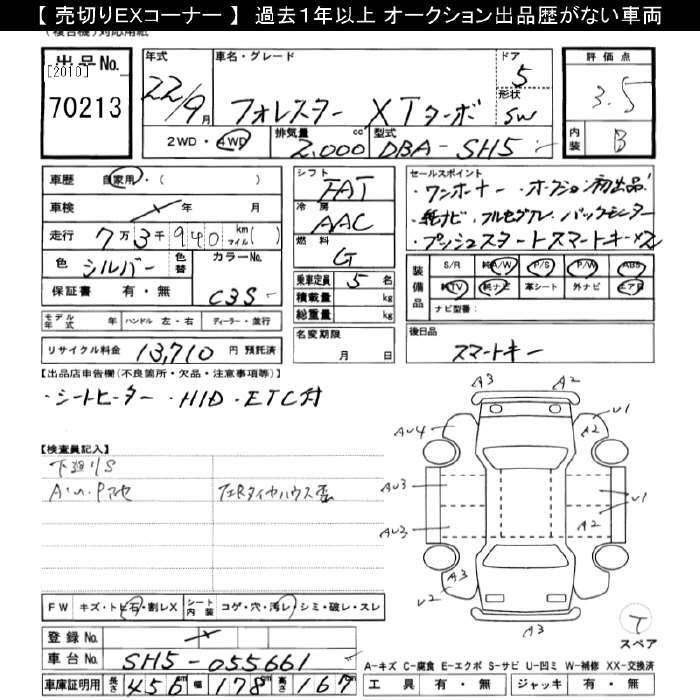 【 売切りEXコーナー 】 過去1年以上 オークション出品歴がない車両
出品No. [2010] 70213
年式 22/9月
車名・グレード フォレスター XTターボ
ドア 5
形状 SW
評価点 3.5
内装 B
2WD・4WD 排気量 2.000 cc 型式 DBA-SH5
車歴 自家用・( )
車検 年 月
走行 7万3千940 km マイル( )
色 シルバー 色替 カラーNo. C3S
保証書 有・無
シフト FAT
冷房 AAC
燃料 G
乗車定員 5名
積載量 kg
総重量 kg
セールスポイント
・ワンオーナー ・オークション初出品!
・純ナビ・フルセグTV・バックモニター
・プッシュスタートスマートキー
装備品 S/R 純A/W P/S P/W ABS
純TV 純ナビ 革シート 外ナビ エアB
ナビ型番:
モデル年式 年 ハンドル 左・右 ディーラー・並行
名変期限 月 日
後日品 スマートキー
リサイクル料金 13,710 円 預託済
【出品店申告欄(不良箇所・欠品・注意事項等)】
・シートヒーター ・HID ・ETC付
【検査員記入】
下廻りS
A・U・P他
左Rタイヤハウス歪
A3 A2
U1
AU4 A2
AU3 U1
AU3 A2
A3 U2
A3 U1
T
スペア
FW キズ・トビ石・割レX シート内装 コゲ・穴・汚レ・シミ・破レ・スレ
登録No.
車台No. SH5-055661
A-キズ C-腐食 E-エクボ S-サビ U-凹ミ W-補修 XX-交換済
車庫証明用 長さ 456 cm 幅 178 cm 高さ 167 cm
工具 有・無 ジャッキ 有・無